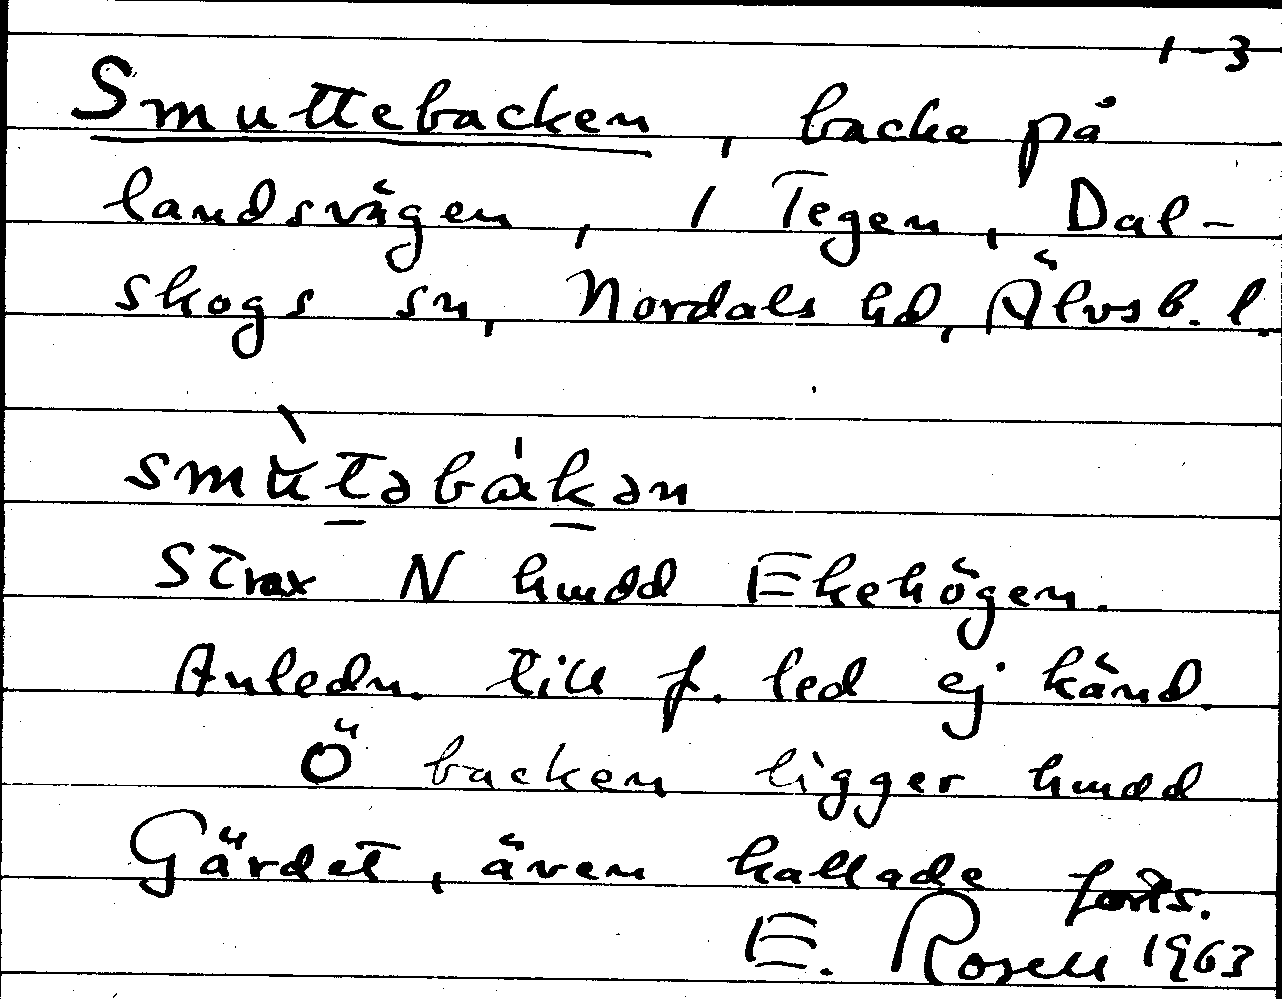 1-3
Smuttebacken, backe på
landsvägen, 1 Tegen, Dal-
skogs sn, Nordals hd, Älvsb. l.
smùt̠əbák̠ən
Strax N hmdd Ekehögen.
Anledn. till f. led ej känd.
Ö backen ligger hmdd
Gärdet, även kallade forts.
E. Rosell 1963